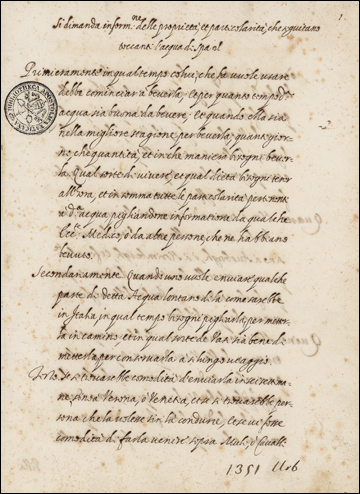 Si dimanda inform.ne delle proprietà, et particolarità, che seguitano
toccanti l'acqua di Spa o!
1
Primieramente in qual tempo colui, che la vuole usare
debbe cominciar a beverla, et per quanto tempo d.a
acqua sia buona da bevere, et quando ella sia
nella migliore stagione per beverla, quanti gior-
no, che quantità, et in che maniera bisogni bever-
la. Qual sorte di vivere, et qual dieta bisogni tener
all'hora, et in somma tutte le particolarità pertinenti
a d.a acqua, pigliandone informatione da qualche
Ecc.te Medico, o da altre persone, che ne habbiano
bevuto.
Secondariamente Quando uno vuole enviare qualche
parte di detta Acqua lontano di là come sarebbe
in Italia, in qual tempo bisogni pigliarla, per metter-
la in camino, et in qual sorte de Vasi sia bene di
metterla per conservarla a sì lungo viaggio.
Terzo se si trovarebbe comodità d'enviarla
sino a Verona, o Venetia, et se si trovarebbe per-
sona che la volesse sin là condurre, et se vi fosse
comodità di farla venire sopra Muli, o Cavalli.
1351 Urb